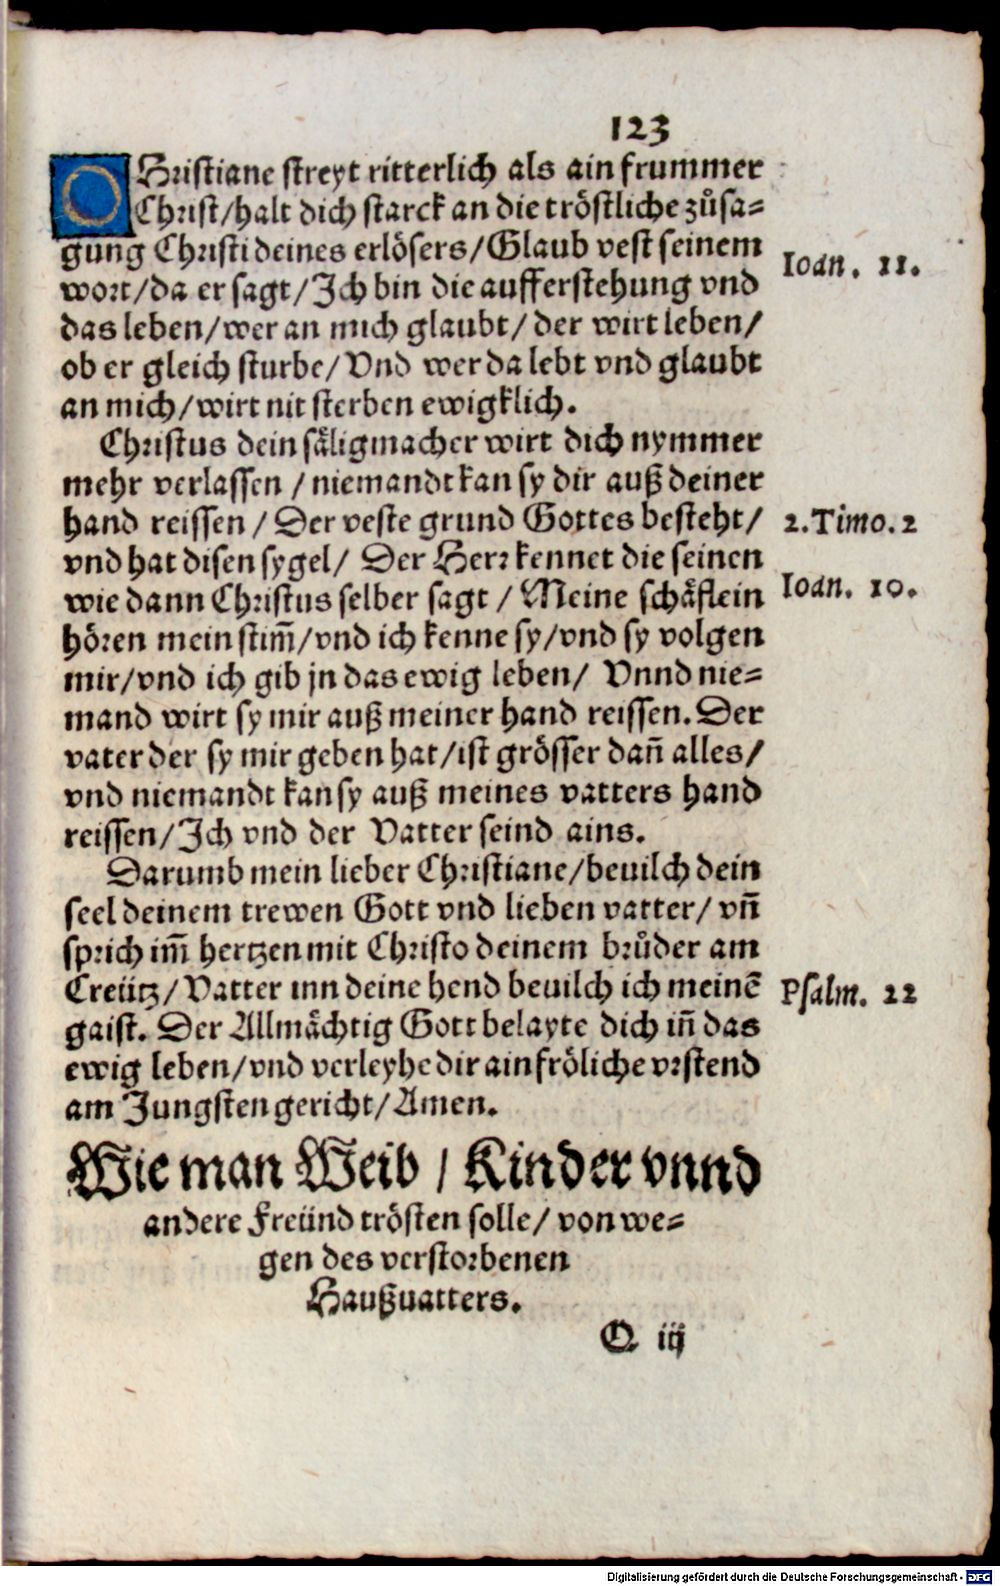 123
OHristiane streyt ritterlich als ain frummer
Christ/halt dich starck an die tröstliche zůsa=
gung Christi deines erlösers/Glaub vest seinem
Ioan. 11.
wort/da er sagt/Ich bin die aufferstehung vnd
das leben/wer an mich glaubt/der wirt leben/
ob er gleich sturbe/Vnd wer da lebt vnd glaubt
an mich/wirt nit sterben ewigklich.
Christus dein säligmacher wirt dich nymmer
mehr verlassen/niemandt kan sy dir auß deiner
hand reissen/Der veste grund Gottes besteht/
2.Timo.2
vnd hat disen sygel/Der Herr kennet die seinen
wie dann Christus selber sagt/Meine schäflein
Ioan. 10.
hören mein stim̃/vnd ich kenne sy/vnd sy volgen
mir/vnd ich gib jn das ewig leben/Vnnd nie=
mand wirt sy mir auß meiner hand reissen.Der
vater der sy mir geben hat/ist grösser dañ alles/
vnd niemandt kan sy auß meines vatters hand
reissen/Ich vnd der Vatter seind ains.
Darumb mein lieber Christiane/beuilch dein
seel deinem trewen Gott vnd lieben vatter/vñ
sprich im̃ hertzen mit Christo deinem brůder am
Creütz/Vatter inn deine hend beuilch ich meinẽ
Psalm. 22
gaist. Der Allmächtig Gott belayte dich iñ das
ewig leben/vnd verleyhe dir ain fröliche vrstend
am Jungsten gericht/Amen.
Wie man Weib/Kinder vnnd
andere Freünd trösten solle/von we=
gen des verstorbenen
Haußuatters.
Q iij
Digitalisierung gefördert durch die Deutsche Forschungsgemeinschaft - DFG